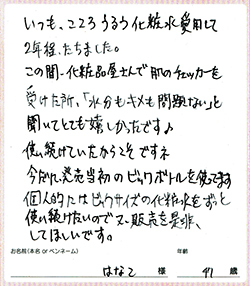 いつも、こころうるう化粧水愛用して
2年程、たちました。
この間、化粧品屋さんで肌のチェッカーを
受けた所、「水分もキメも問題ない」と
聞いてとても嬉しかったです♪
使い続けていたからこそですネ
今だに、発売当初のビックボトルを使ってます
個人的にはビックサイズの化粧水をずっと
使い続けたいので又、販売を是非、
してほしいです。
お名前(本名 or ペンネーム) 年齢
はなこ 様 41 歳